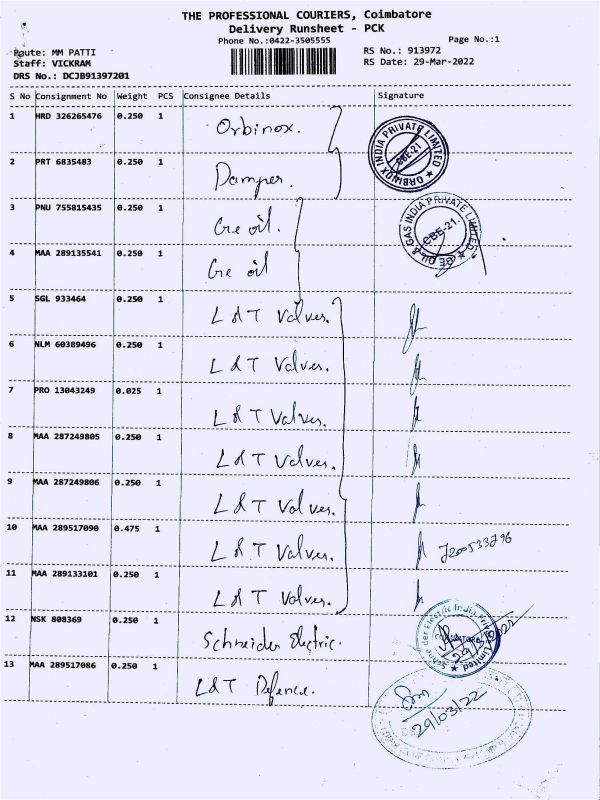 THE PROFESSIONAL COURIERS, Coimbatore
Delivery Runsheet - PCK
Phone No.:0422-3505555
Page No.:1
Route: MM PATTI
RS No.: 913972
Staff: VICKRAM
RS Date: 29-Mar-2022
DRS No.: DCJB91397201
S No Consignment No Weight PCS Consignee Details Signature
1 HRD 326265476 0.250 1 Orbinox.
ORBINOX INDIA PRIVATE LIMITED ★ CBE-21
2 PRT 6835483 0.250 1 Damper.
3 PNU 755815435 0.250 1 Ge oil.
GE OIL & GAS INDIA PRIVATE LIMITED ★ CBE-21.
4 MAA 289135541 0.250 1 Ge oil
5 SGL 933464 0.250 1 L & T Valves.
6 NLM 60389496 0.250 1 L & T Valves.
7 PRO 13043249 0.025 1 L & T Valves.
8 MAA 287249805 0.250 1 L & T Valves.
9 MAA 287249806 0.250 1 L & T Valves.
10 MAA 289517090 0.475 1 L & T Valves.
11 MAA 289133101 0.250 1 L & T Valves.
12 NSK 808369 0.250 1 Schneider Electric.
Schneider Electric India Private Limited ★
13 MAA 289517086 0.250 1 L&T Defence.
29/03/22